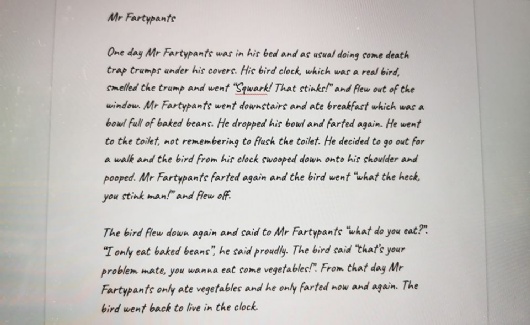 Mr Fartypants
One day Mr Fartypants was in his bed and as usual doing some death
trap trumps under his covers. His bird clock, which was a real bird,
smelled the trump and went "Sqwark! That stinks!" and flew out of the
window. Mr Fartypants went downstairs and ate breakfast which was a
bowl full of baked beans. He dropped his bowl and farted again. He went
to the toilet, not remembering to flush the toilet. He decided to go out for
a walk and the bird from his clock swooped down onto his shoulder and
pooped. Mr Fartypants farted again and the bird went "what the heck,
you stink man!" and flew off.
The bird flew down again and said to Mr Fartypants "what do you eat?".
"I only eat baked beans", he said proudly. The bird said "that's your
problem mate, you wanna eat some vegetables!". From that day Mr
Fartypants only ate vegetables and he only farted now and again. The
bird went back to live in the clock.